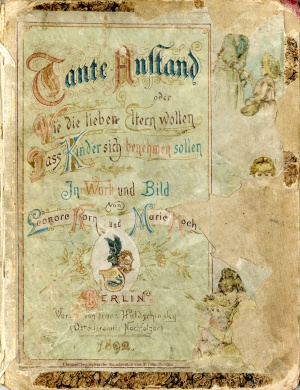 Tante Anstand
oder
Wie die lieben Eltern wollen
Dass Kinder sich benehmen sollen
In Wort und Bild
von
Leonore Korn und Marie Koch
BERLIN
Verlag von
(Otto Nachfolger)
1892